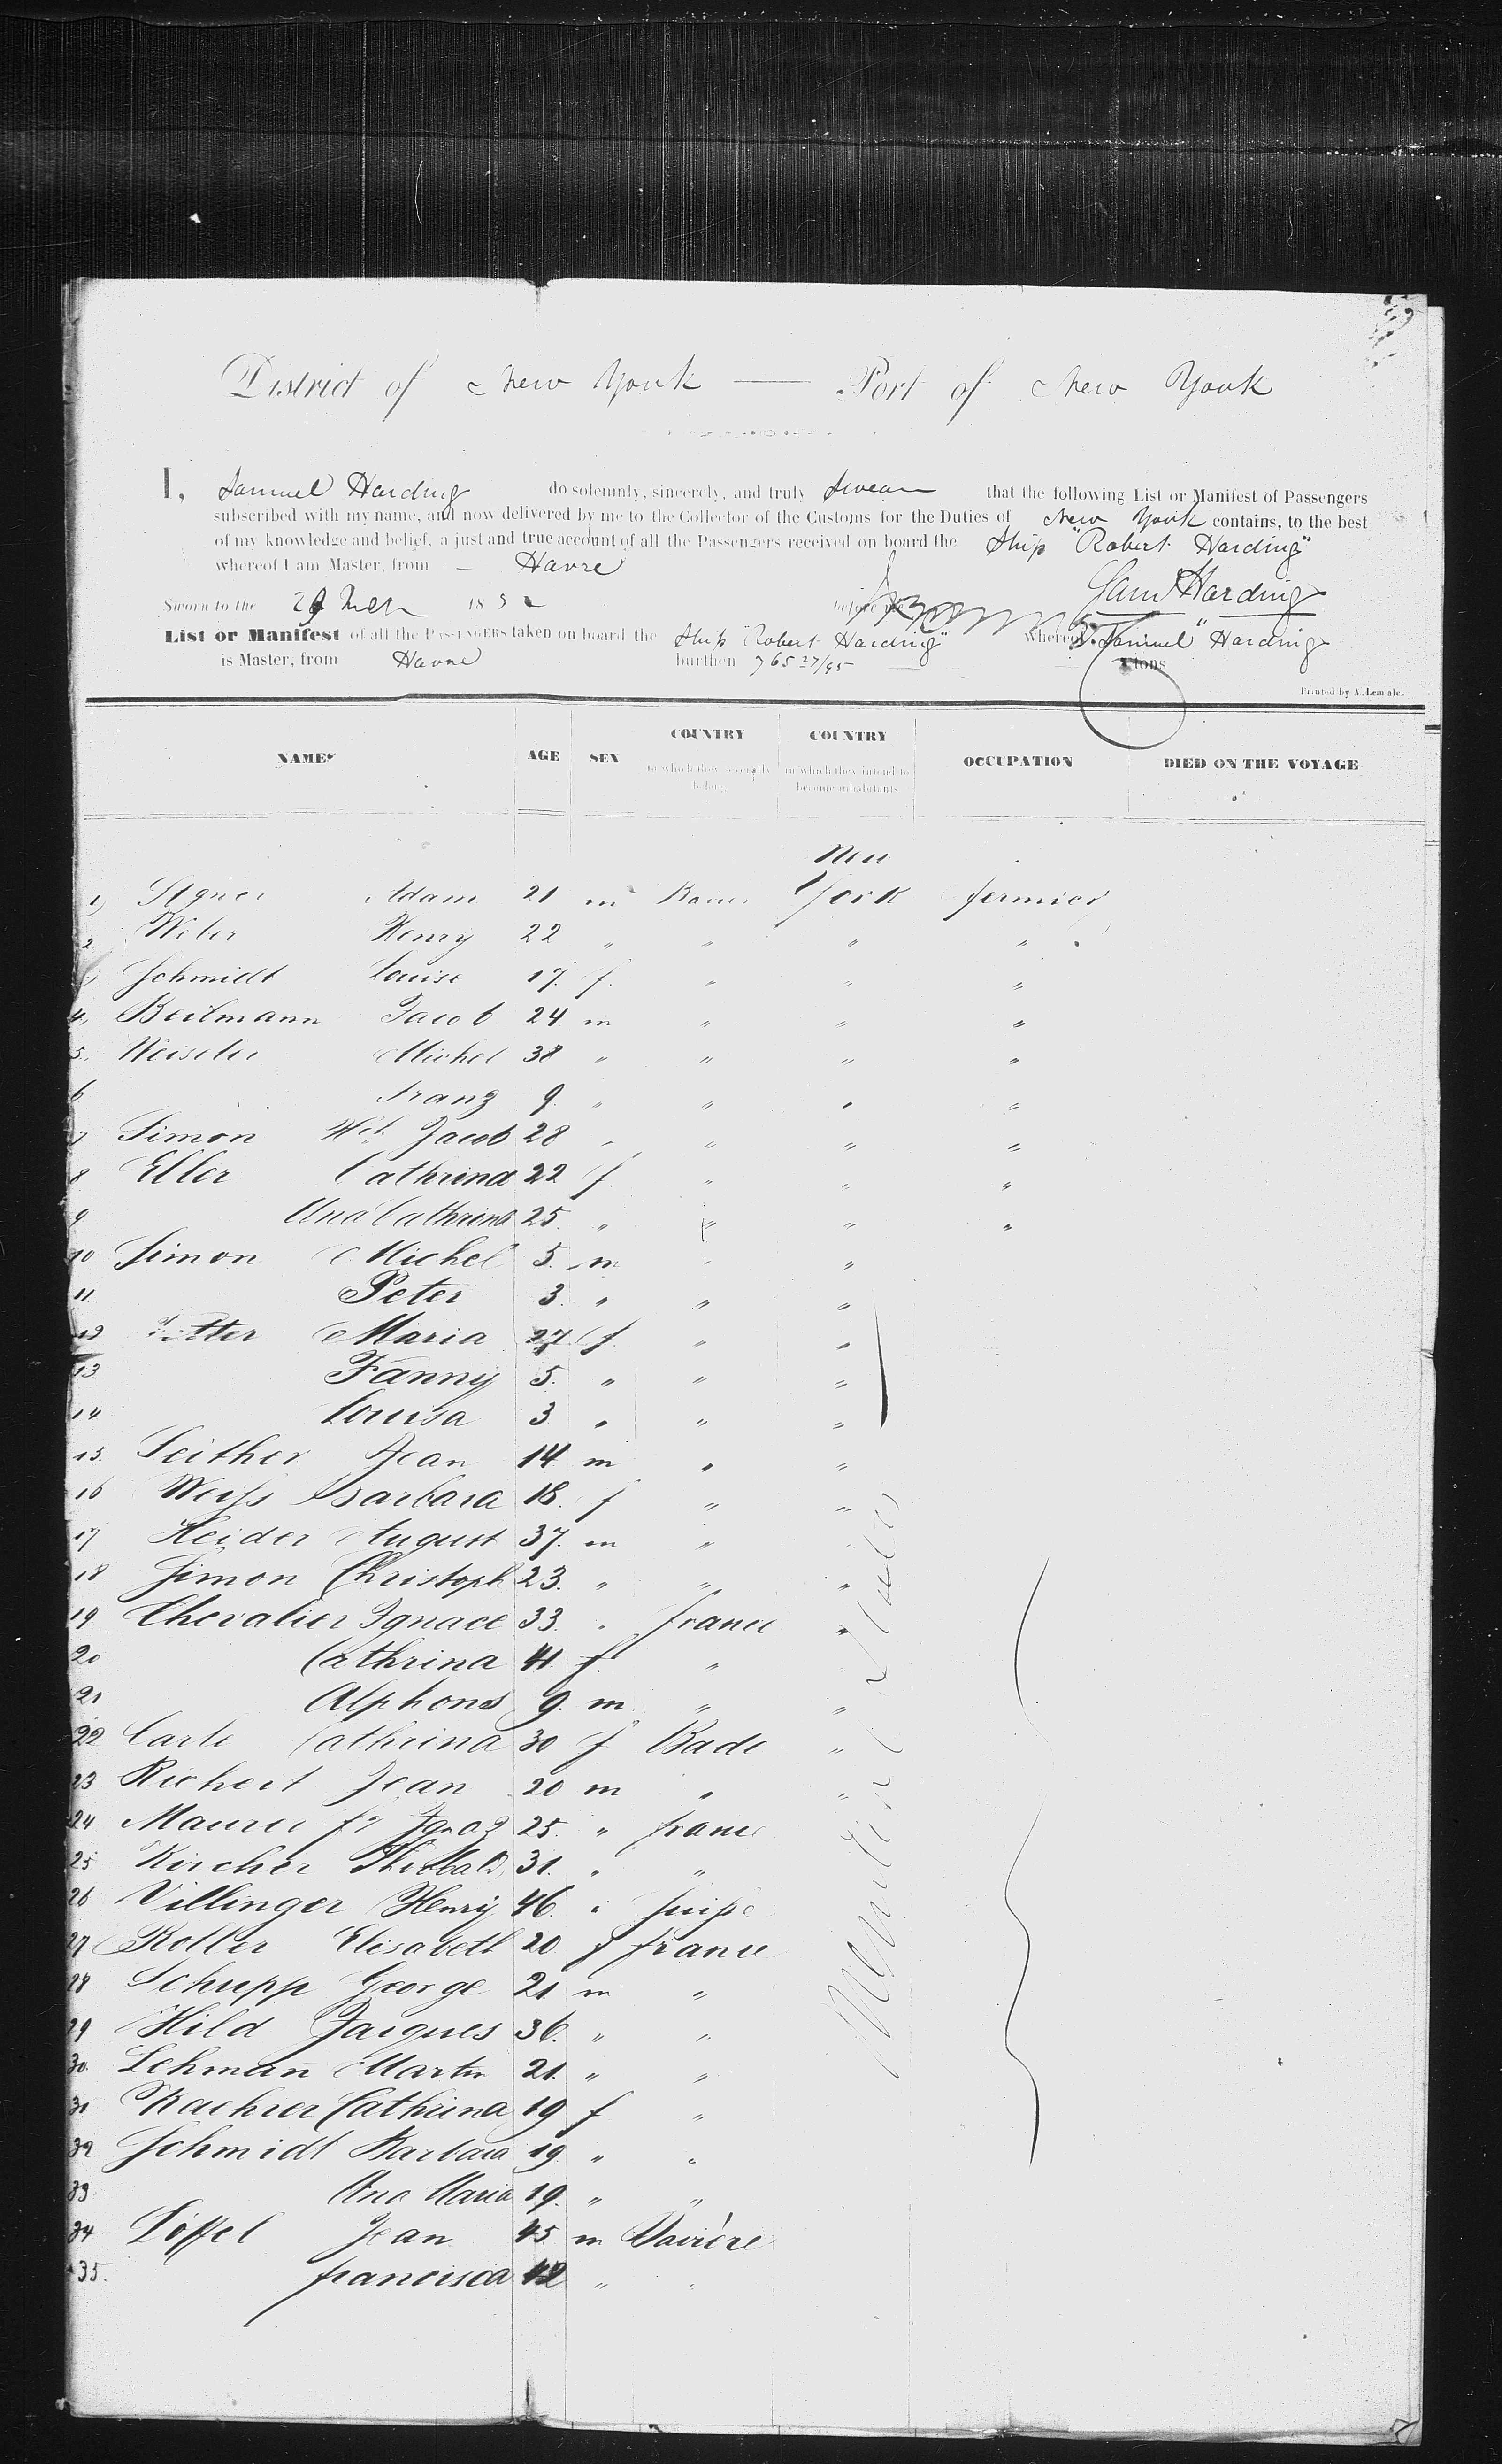 District of New York — Port of New York
I, Samuel Harding do solemnly, sincerely, and truly Swear that the following List or Manifest of Passengers
subscribed with my name, and now delivered by me to the Collector of the Customs for the Duties of New York contains, to the best
of my knowledge and belief, a just and true account of all the Passengers received on board the Ship "Robert Harding"
whereof I am Master, from — Havre
Saml Harding
Sworn to the 185 before me
List or Manifest of all the PASSENGERS taken on board the Ship "Robert Harding" Whereof Samuel Harding
is Master, from Havre burthen 765 37/95 tons
Printed by A. Lemale.
NAMES AGE SEX COUNTRY to which they severally belong COUNTRY in which they intend to become inhabitants OCCUPATION DIED ON THE VOYAGE
New
1) Adam 21 m York fermier
2 Weber Henry 22 " " " "
Schmidt Louise 17 f. " " "
4, Beilmann Jacob 24 m " " "
5. Michel 38 " " " "
6 Franz 9. " " " "
7 Simon Jacob 28 " " " "
8 Eller Cathrina 22 f. " " "
9 Ana Cathrina 25. " " " "
10 Simon Michel 5. m " "
11. Peter 3. " " "
12 Maria 27 f. " "
13 Fanny 5. " " "
14 Louisa 3 " " "
15. Seither Jean 14 m " "
16 Weiss Barbara 18. f " "
17 Heider August 37. m " "
18 Simon Christoph 23. " " "
19 Chevalier Ignace 33. " france "
20 Cathrina 41. f. "
21 Alphons 9. m. " "
22 Carle Cathrina 30 f Bade "
23 Richert Jean 20 m " "
24 Maurer Ignaz 25. " france
25 Kircher Thiebald 31. " "
26 Villinger Henry 46. "
27 Roller Elisabeth 20 f france
28 Schupp George 21. m "
29 Hild Jacques 36. " "
30. Lehman Martin 21. " "
31 Cathrina 19 f "
32 Schmidt Barbara 19. " "
33 Ana Maria 19. " "
34 Löffel Jean 45 m Bavière
35. francisca 12 " "